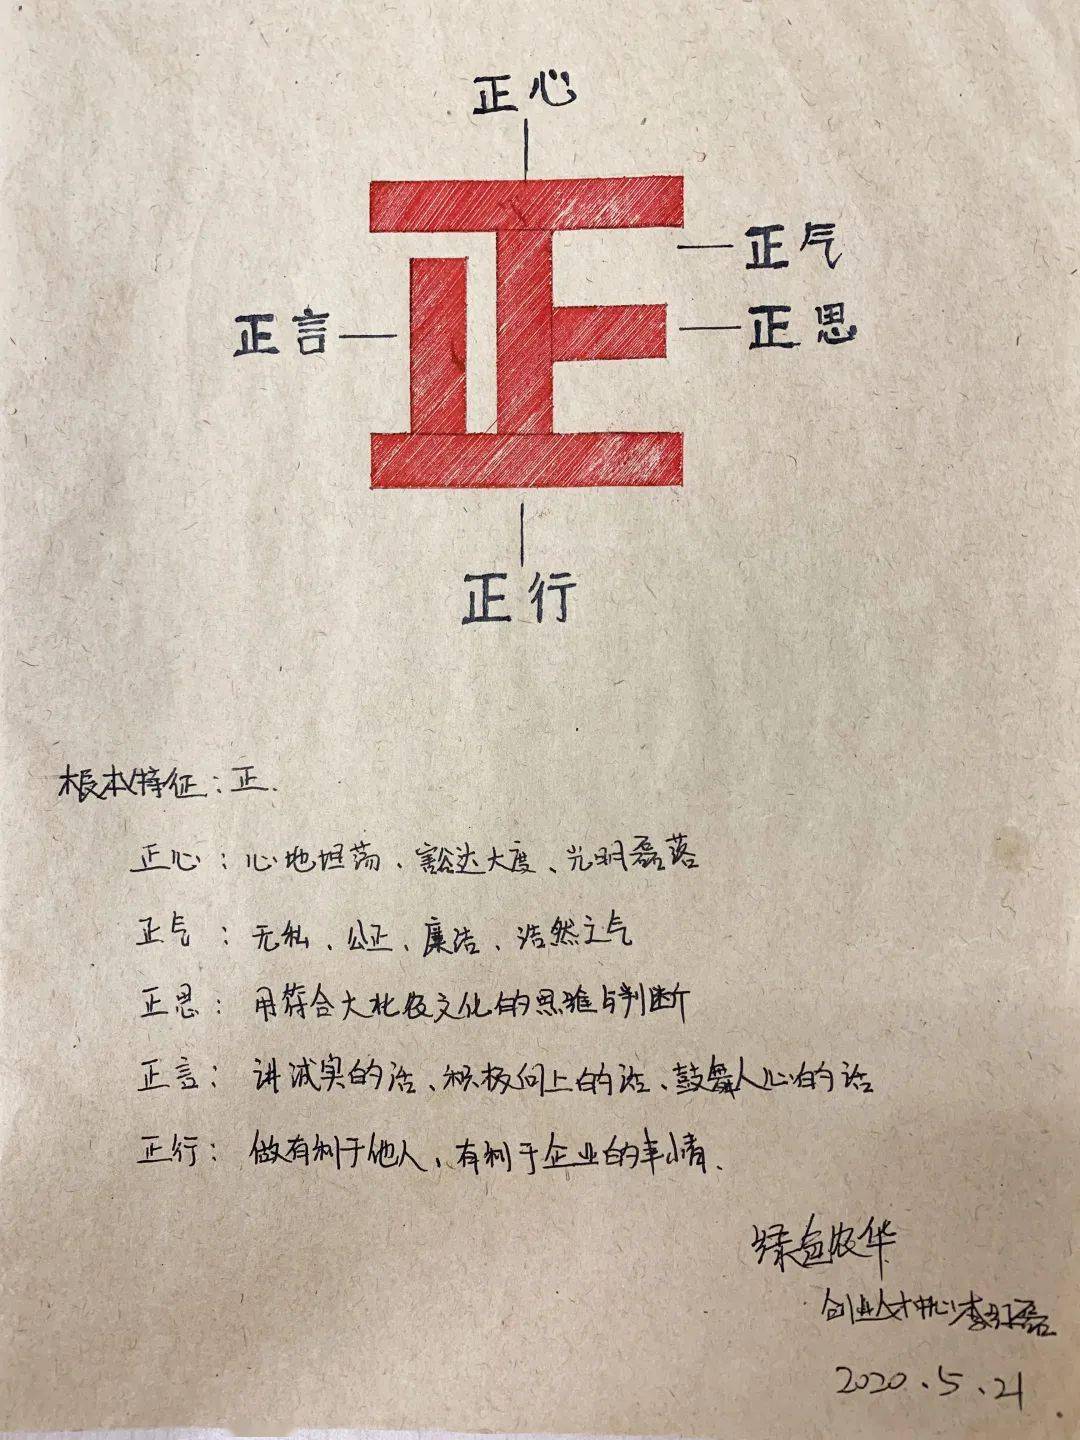 正心
正
正气
正言
正思
正行
根本特征：正.
正心：心地坦荡、豁达大度、光明磊落
正气：无私、公正、廉洁、浩然之气
正思：用符合大北农文化的思维与判断
正言：讲诚实的话、积极向上的话、鼓舞人心的话
正行：做有利于他人、有利于企业的事情.
绿色农华
创业人才中心 李红磊
2020.5.21